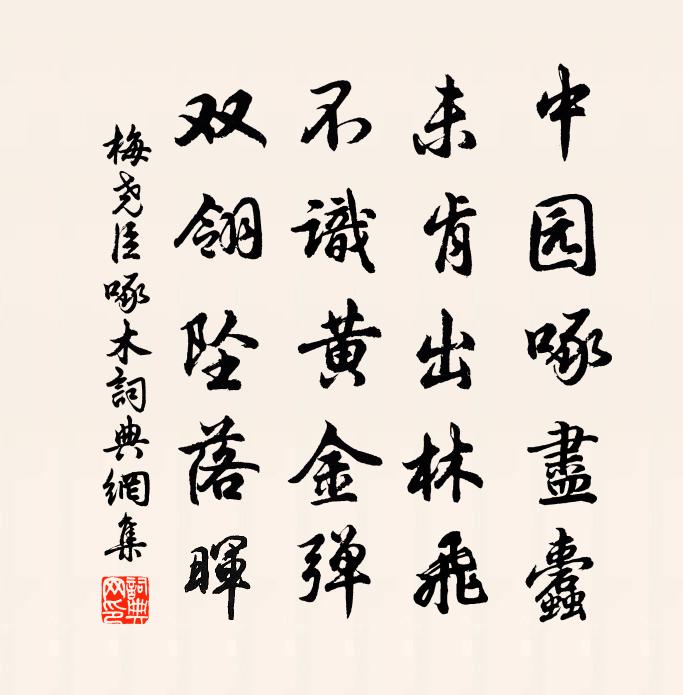 中园啄盡蠹
未肯出林飛
不識黄金弹
双翎坠落暉
梅尧臣啄木詞典網集
詞典网印